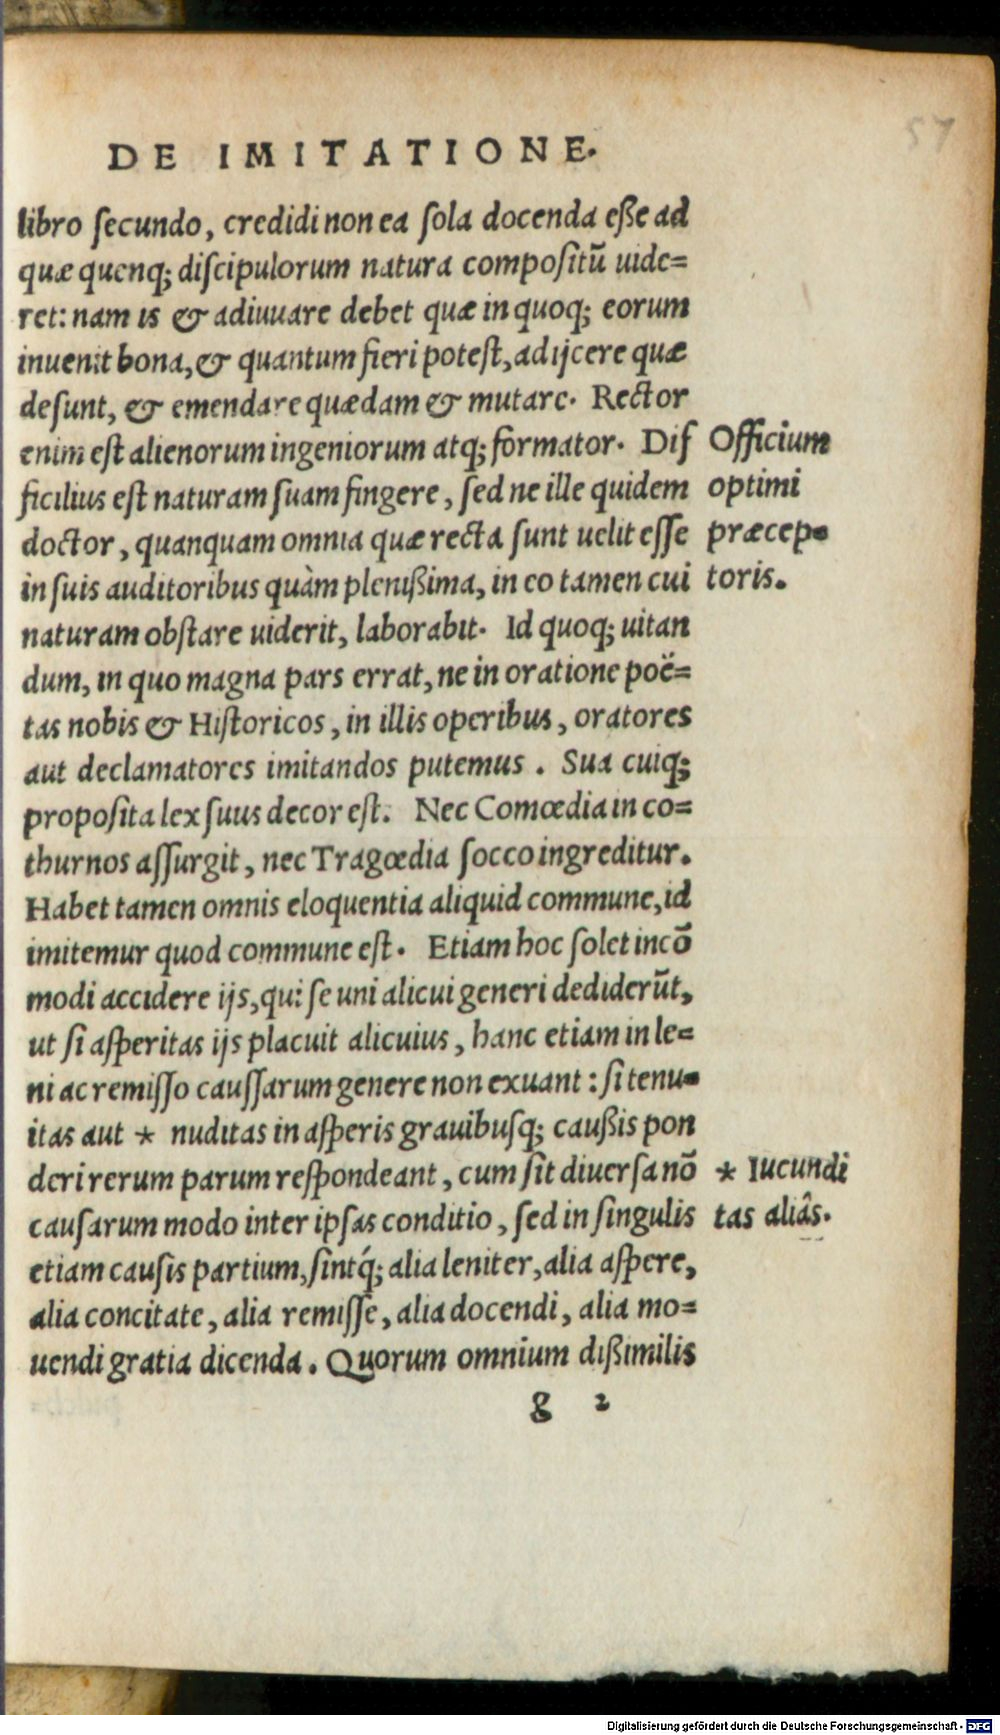 57
DE IMITATIONE.
libro ſecundo, credidi non ea ſola docenda eße ad
quæ quenq; diſcipulorum natura compoſitū uide=
ret: nam is & adiuuare debet quæ in quoq; eorum
inuenit bona, & quantum fieri poteſt, adijcere quæ
deſunt, & emendare quædam & mutare. Rector
enim est alienorum ingeniorum atq; formator. Dif
ficilius eſt naturam ſuam fingere, ſed ne ille quidem
doctor, quanquam omnia quæ recta ſunt uelit eſſe
in ſuis auditoribus quàm plenißima, in eo tamen cui
naturam obſtare uiderit, laborabit. Id quoq; uitan
dum, in quo magna pars errat, ne in oratione poë=
tas nobis & Hiſtoricos, in illis operibus, oratores
aut declamatores imitandos putemus. Sua cuiq;
propoſita lex ſuus decor eſt. Nec Comœdia in co=
thurnos aſſurgit, nec Tragœdia ſocco ingreditur.
Habet tamen omnis eloquentia aliquid commune, id
imitemur quod commune eſt. Etiam hoc ſolet incō
modi accidere ijs, qui ſe uni alicui generi dediderūt,
ut ſi aſperitas ijs placuit alicuius, hanc etiam in le=
ni ac remiſſo cauſſarum genere non exuant: ſi tenu=
itas aut * nuditas in aſperis grauibuſq; caußis pon
deri rerum parum reſpondeant, cum ſit diuerſa nō
cauſarum modo inter ipſas conditio, ſed in ſingulis
etiam cauſis partium, ſintq́; alia leniter, alia aſpere,
alia concitate, alia remiſſe, alia docendi, alia mo=
uendi gratia dicenda. Quorum omnium dißimilis
g 2
Officium
optimi
præcep=
toris.
* Iucundi
tas aliâs.
Digitalisierung gefördert durch die Deutsche Forschungsgemeinschaft - DFG